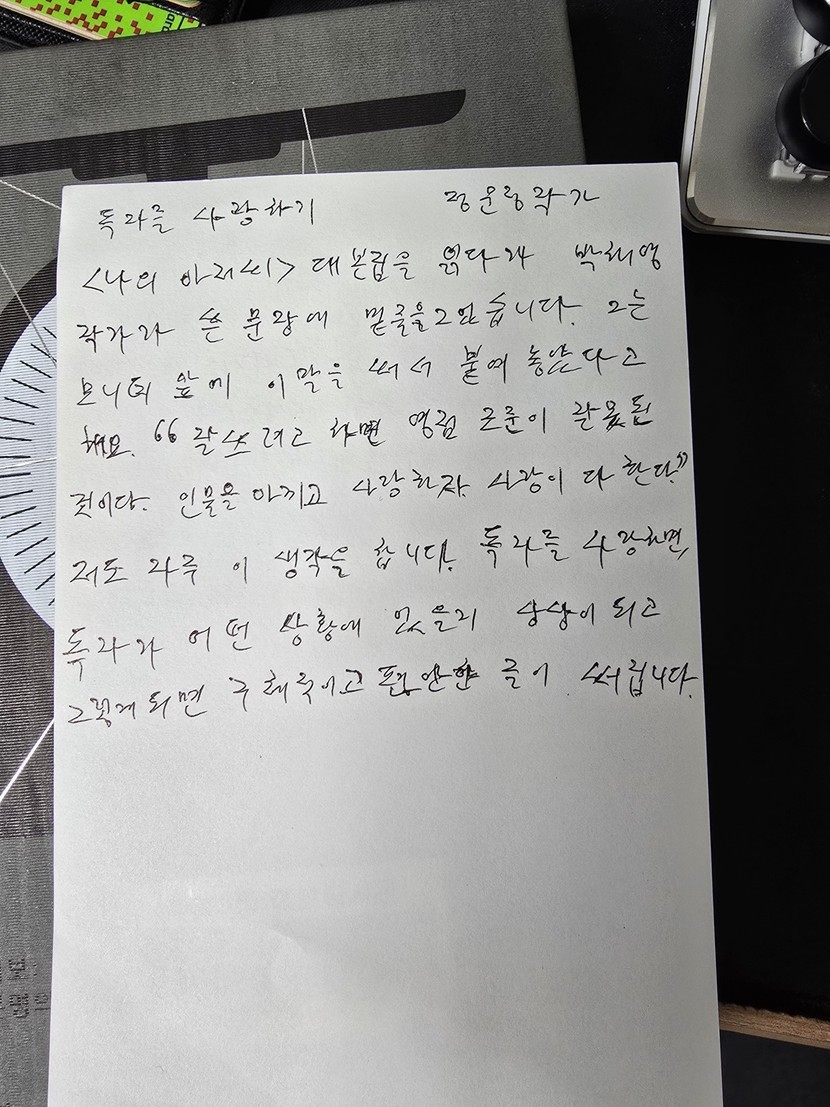 독자를 사랑하기 정문정 작가
<나의 아저씨> 대본집을 읽다가 박해영
작가가 쓴 문장에 밑줄을 그었습니다. 그는
모니터 앞에 이 말을 써서 붙여 놓았다고
해요. “잘 쓰려고 하면 영점 조준이 잘못된
것이다. 인물을 아끼고 사랑하자. 사랑이 다 한다.”
저도 자주 이 생각을 합니다. 독자를 사랑하면,
독자가 어떤 상황에 있을지 상상이 되고
그렇게 되면 구체적이고 편안한 글이 써집니다.